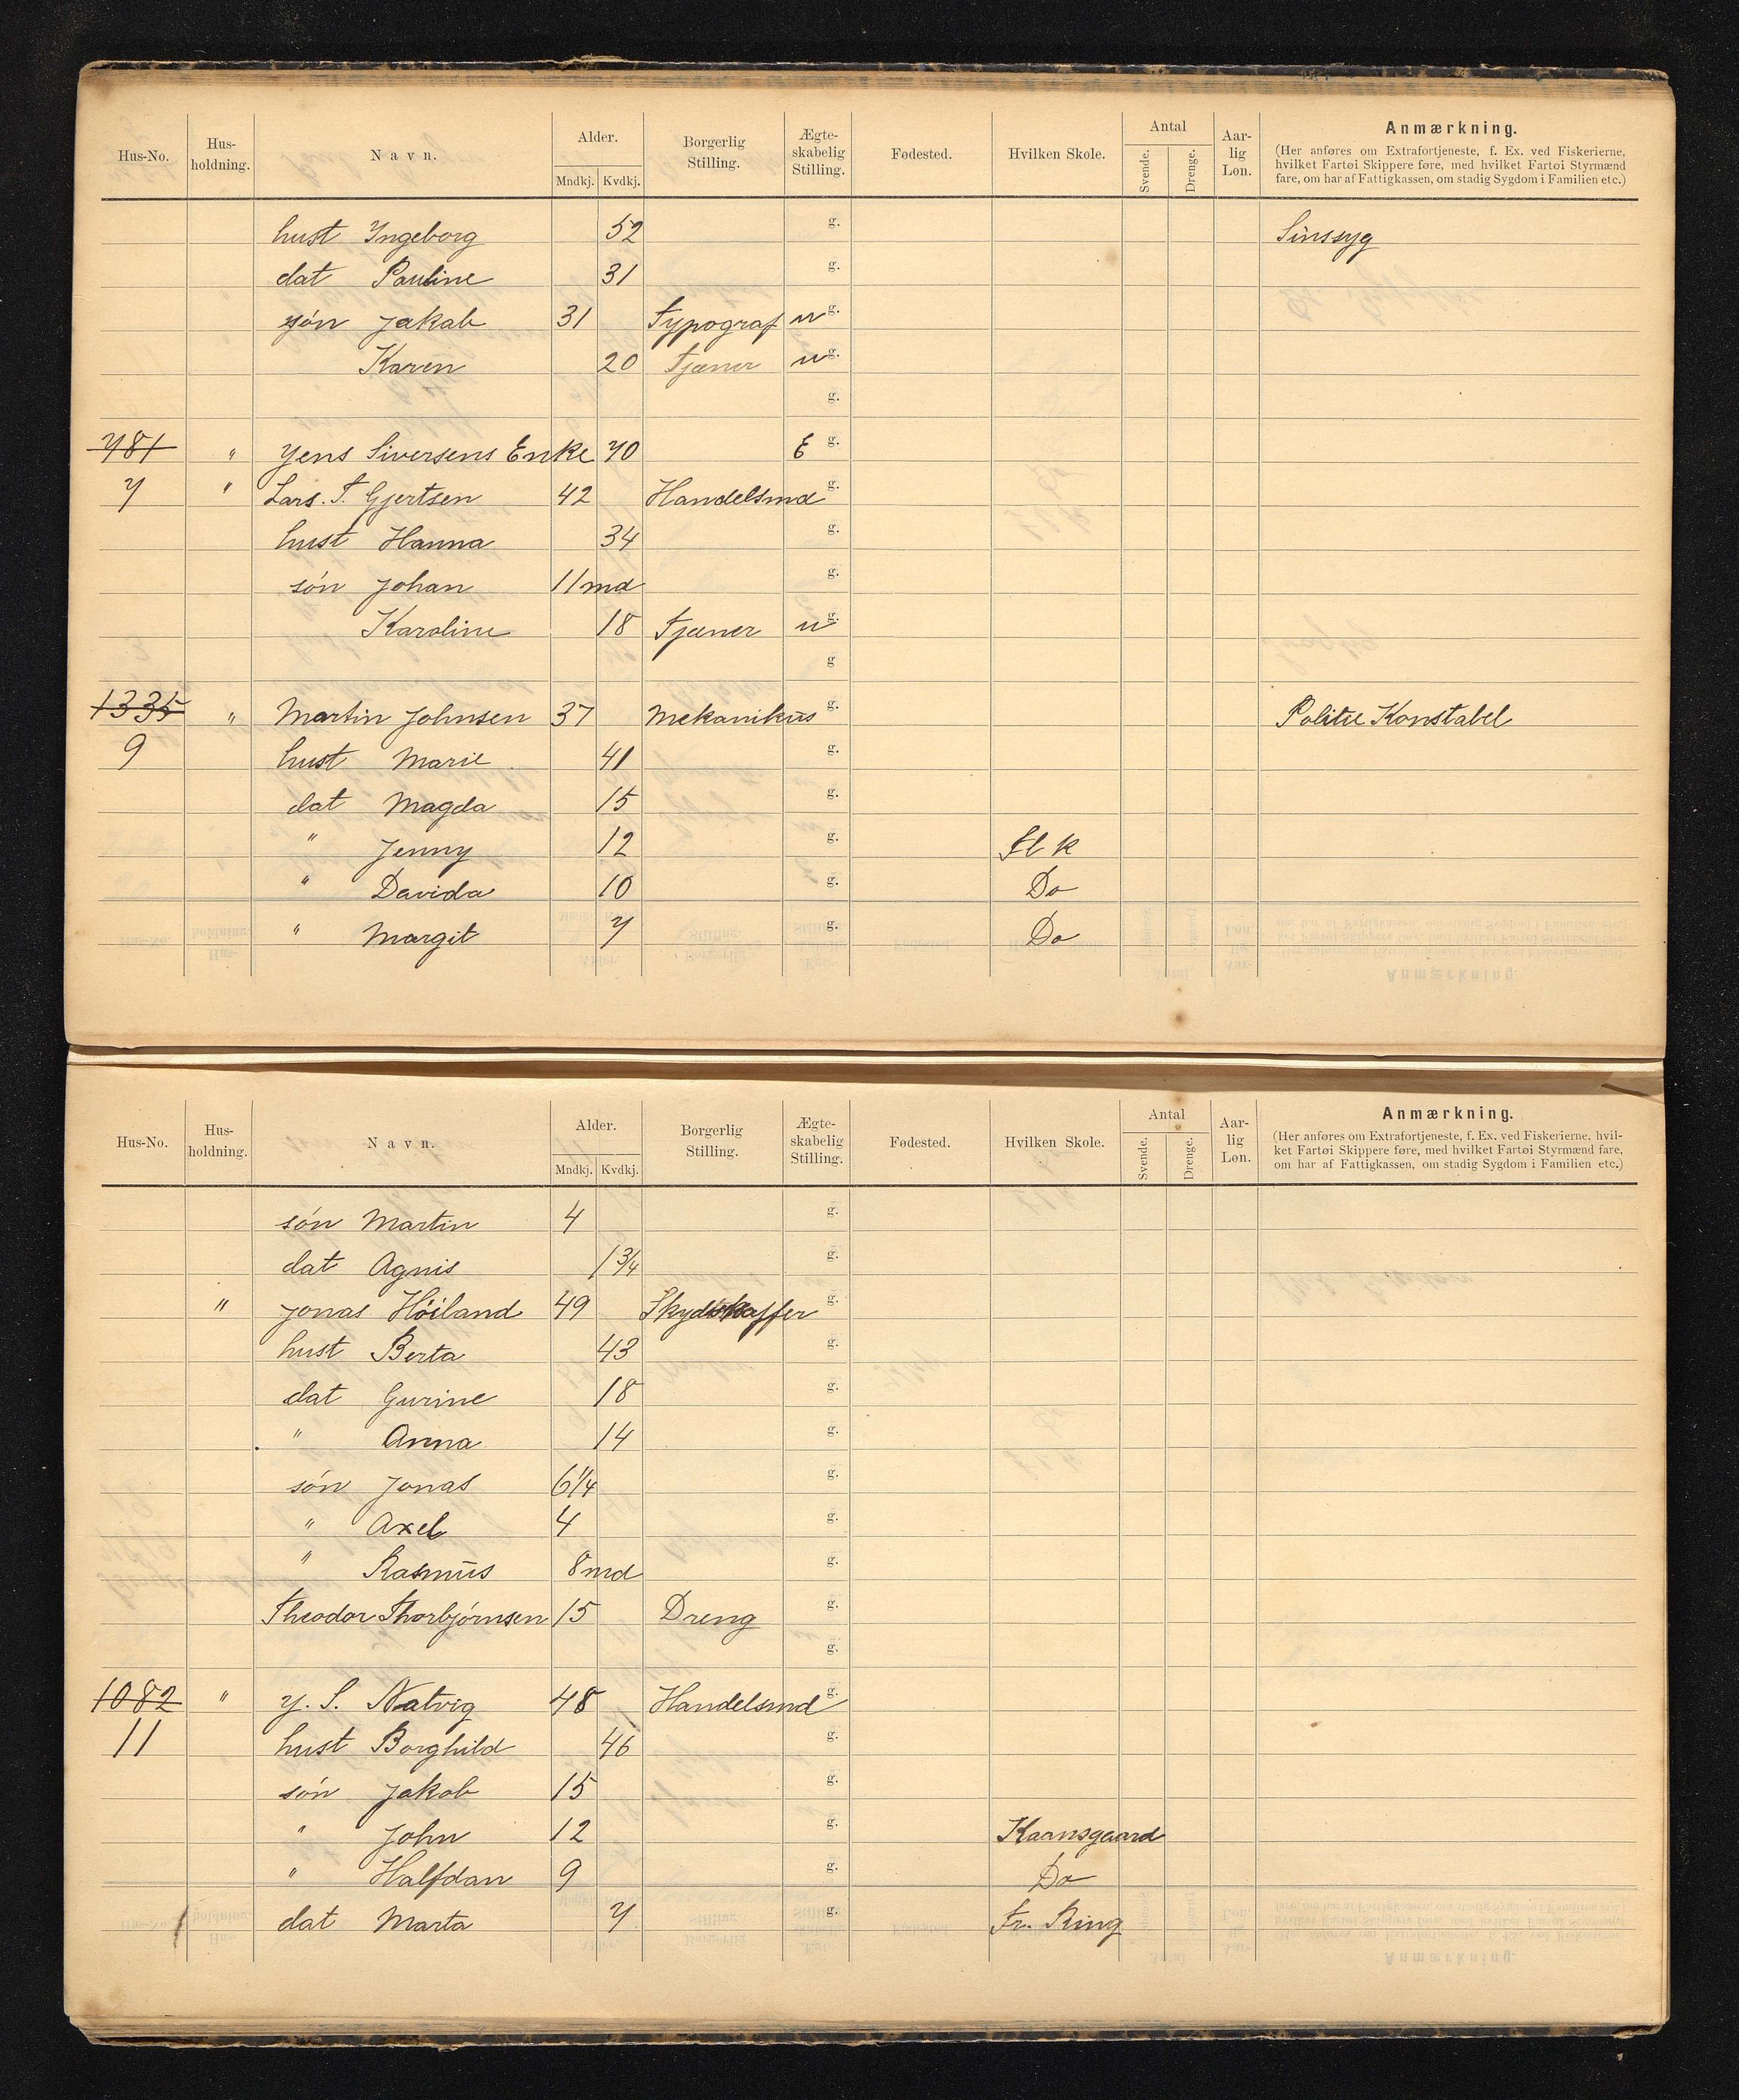 Hus-No. Hus-holdning. Navn. Alder. Mndkj. Kvdkj. Borgerlig Stilling. Ægte-skabelig Stilling. Fødested. Hvilken Skole. Antal Svende. Drenge. Aar-lig Løn. Anmærkning.
(Her anføres om Extrafortjeneste, f. Ex. ved Fiskerierne,
hvilket Fartøi Skippere føre, med hvilket Fartøi Styrmænd
fare, om har af Fattigkassen, om stadig Sygdom i Familien etc.)
hust Ingeborg 52 g. Sinssyg
dat Pauline 31 g.
søn Jakab 31 Typograf u g.
Karen 20 Tjener u g.
g.
781 " Jens Siversens Enke 70 E g.
7 " Lars. T. Gjertsen 42 Handelsmd g.
hust Hanna 34 g.
søn Johan 11 md g.
Karoline 18 Tjener u g.
g
1335 " Martin Johnsen 37 Mekanikus g. Politie Konstabel
9 hust Marie 41 g.
dat Magda 15 g.
" Jenny 12 g. Fl k
" Davida 10 g. Do
" Margit 7 g. Do
Hus-No. Hus-holdning. Navn. Alder. Mndkj. Kvdkj. Borgerlig Stilling. Ægte-skabelig Stilling. Fødested. Hvilken Skole. Antal Svende. Drenge. Aar-lig Løn. Anmærkning.
(Her anføres om Extrafortjeneste, f. Ex. ved Fiskerierne, hvil-
ket Fartøi Skippere føre, med hvilket Fartøi Styrmænd fare,
om har af Fattigkassen, om stadig Sygdom i Familien etc.)
søn Martin 4 g.
dat Agnis 1 3/4 g.
" Jonas Höiland 49 Skydskaffer g.
hust Berta 43 g.
dat Gurine 18 g.
" Anna 14 g.
søn Jonas 6 1/4 g.
" Axel 4 g.
" Rasmus 8 md g.
Theodor Thorbjørnsen 15 Dreng g.
g.
1082 " J. S. Natvig 48 Handelsmd g.
11 hust Borghild 46 g.
søn Jakob 15 g.
" John 12 g. Kaansgaard
" Halfdan 9 g. Do
dat Marta 7 g. Fr. Ring